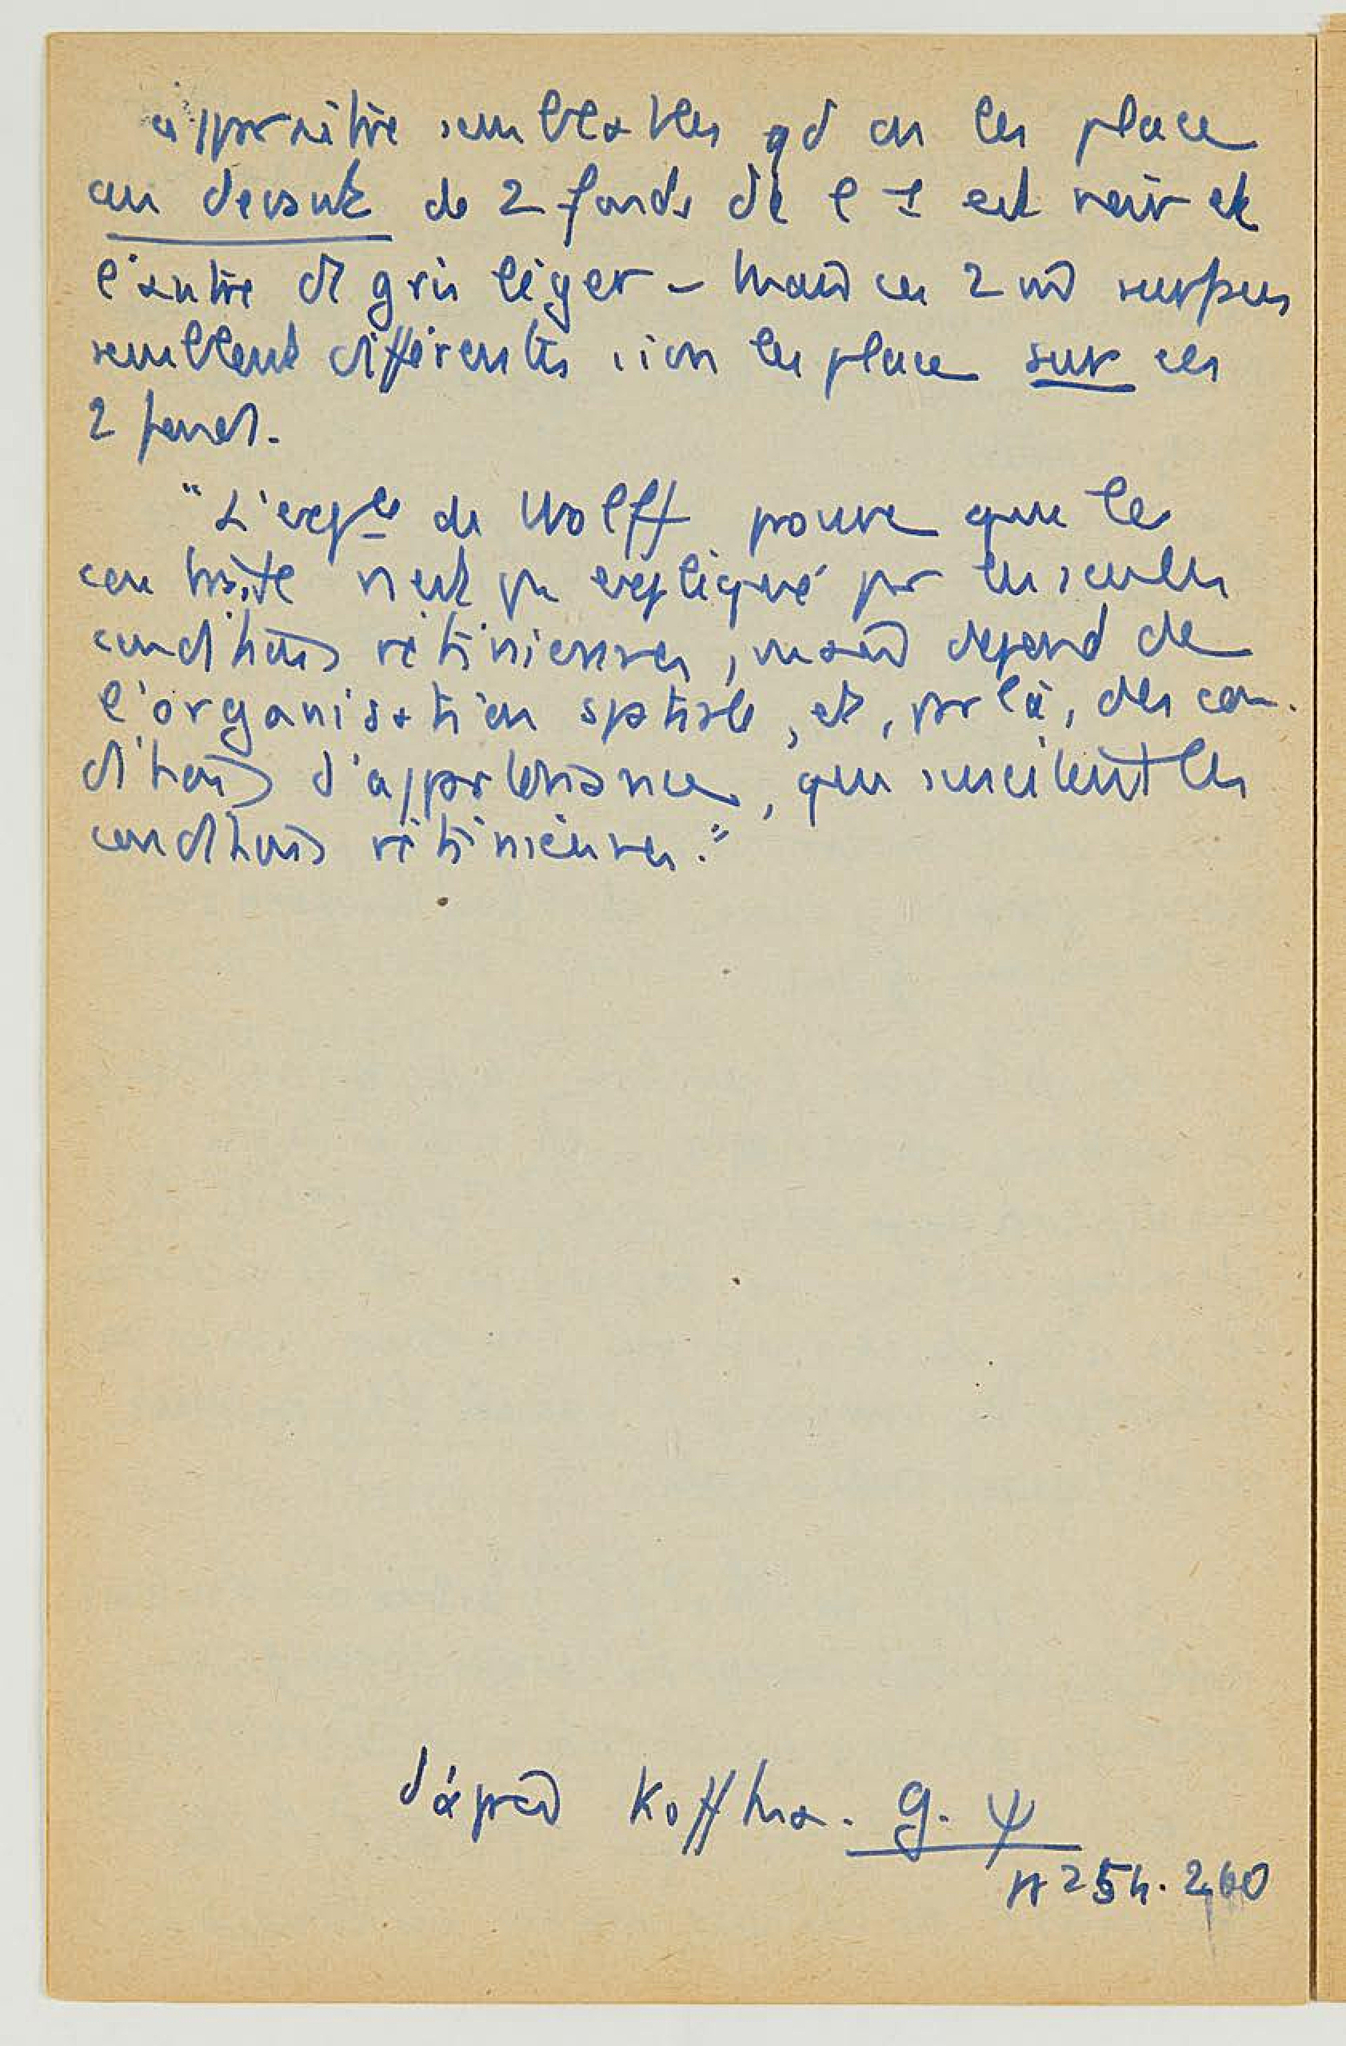 apparaître semblables qd on les place
au devant de 2 fonds dt l'1 est noir et
l'autre dt gris léger - Mais ces 2 m̂ surfaces
semblent différentes si on les place sur ces
2 fonds.
"L'expce de Wolff prouve que le
contraste n'est pas expliqué par les seules
conditions rétiniennes, mais dépend de
l'organisation spatiale, et, par là, des con-
ditions d'appartenance, que suscitent les
conditions rétiniennes."
d'après Koffka. G. ψ
p 254. 260